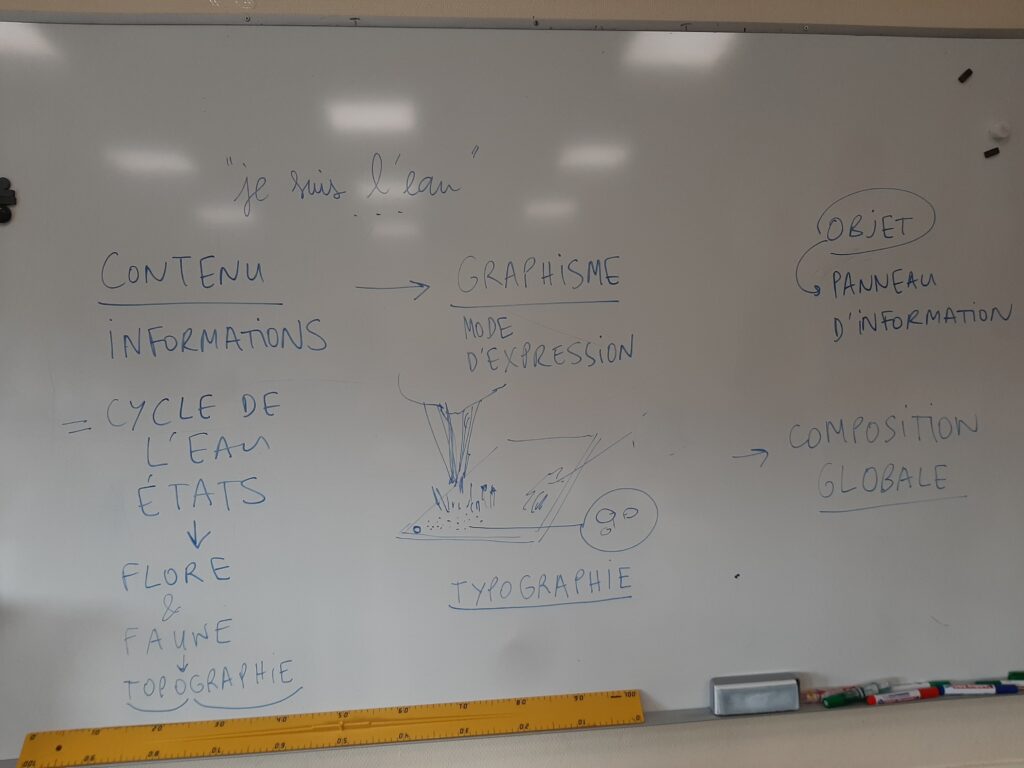 "je suis l'eau"
....
CONTENU → GRAPHISME
INFORMATIONS
MODE
D'EXPRESSION
= CYCLE DE
L'EAU
ÉTATS
↓
FLORE
&
FAUNE
↓
TOPOGRAPHIE
TYPOGRAPHIE
OBJET
PANNEAU
D'INFORMATION
→ COMPOSITION
GLOBALE